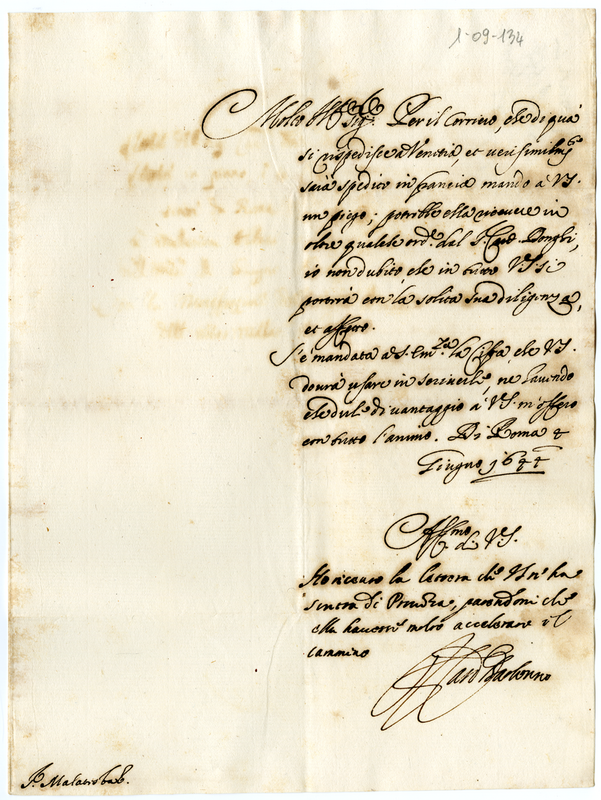 1-09-134
Molto Ill.re Sig.re Per il Corriero, che di quà
si rispedisce a Venetia, et verisimilm.te
sarà spedito in francia mando à VS.
un piego; potrebbe ella ricevere in
oltre qualche ord.e dal S. Card. Donghi,
io non dubito che in tutto VS. si
porterà con la solita sua diligenza,
et affetto.
S'è mandata à S. Em.za la Ciffra che VS.
dovrà usare in scriverli, ne havendo
che dirle di vantaggio à VS. m'offero
con tutto l'animo. Di Roma 4
Giugno 1644
Aff.mo
di VS.
Ho ricevuto la lettera che VS m'ha
scritta di, parendomi che
ella havesse molto accelerare il
cammino
Card Barberino